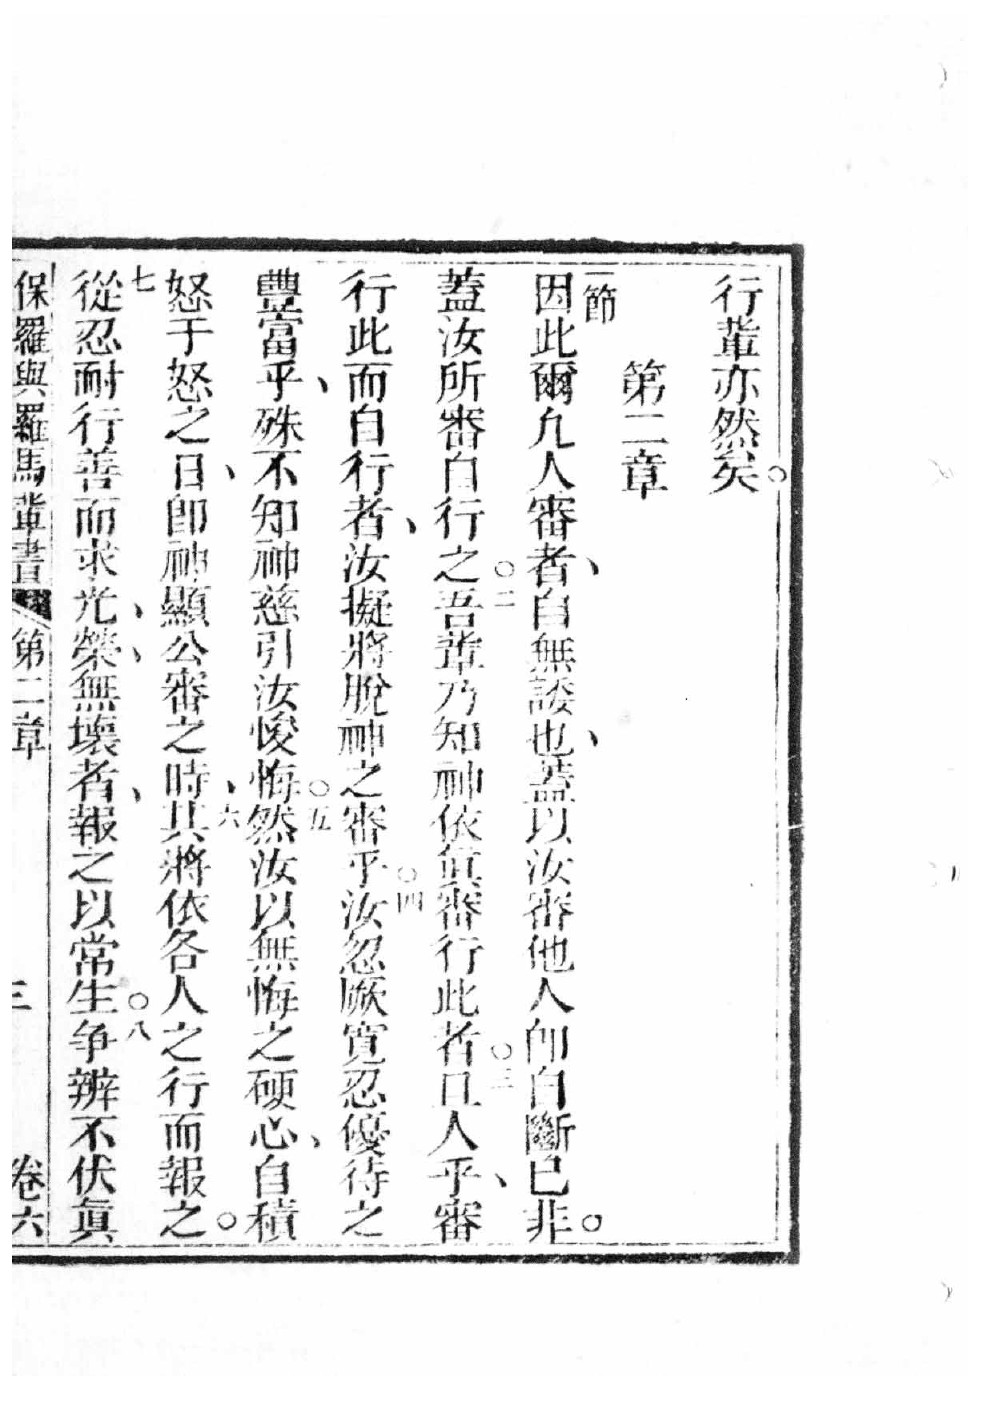 行輩亦然矣。
第二章
一節
因此爾凢人審者、自無諉也、蓋以汝審他人卽自斷已非。
蓋汝所審自行之。二吾輩乃知神依眞審行此者。三且人乎、審
行此而自行者、汝擬將脫神之審乎。四汝忽厥寬忍優待之
豐富乎、殊不知神慈引汝悛悔。五然汝以無悔之硬心、自積
怒于怒之日、卽神顯公審之時、六其將依各人之行而報之。
七從忍耐行善而求光、榮、無壞者、報之以常生。八争辨不伏眞
保羅與羅馬輩書 第二章 三 卷六